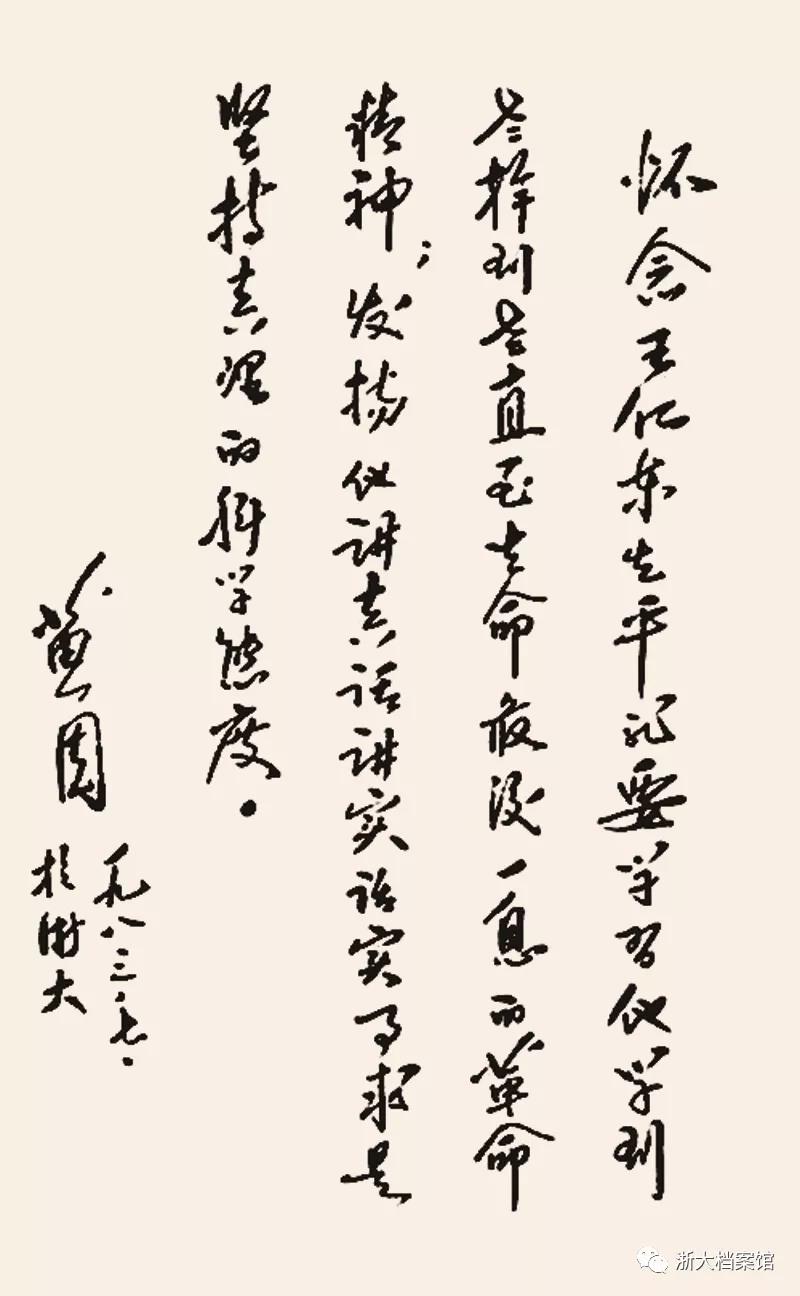 怀念王仁东生平记要学习他学到
老干到老直至生命最后一息的革命
精神；发扬他讲真话讲实话实事求是
坚持真理的科学态度。
黄固
一九八三.七.
于浙大
浙大档案馆